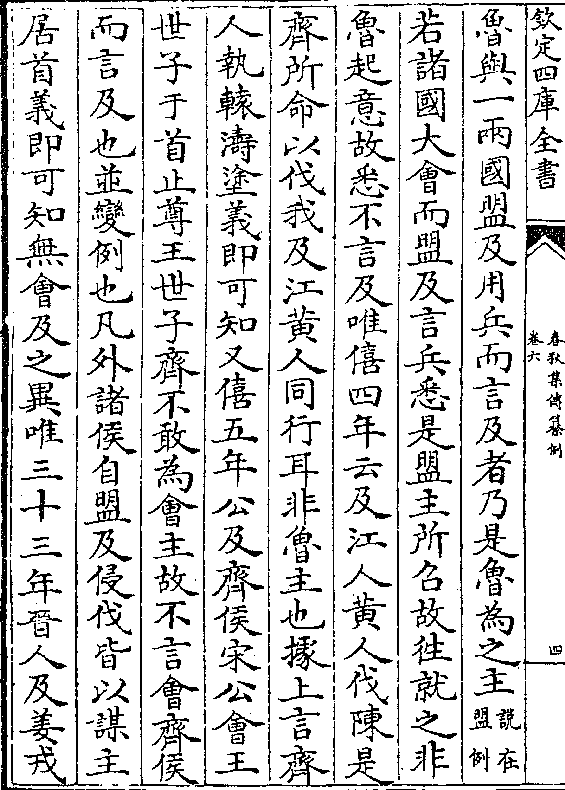 欽定四庫全書
春秋集傳纂例
卷六
四
魯與一兩國盟及用兵而言及者乃是魯為之主說在盟例
若諸國大會而盟及言兵悉是盟主所召故徃就之非
魯起意故悉不言及唯僖四年云及江人黄人伐陳是
齊所命以伐我及江黄人同行耳非魯主也據上言齊
人執轅濤塗義即可知又僖五年公及齊侯宋公會王
世子于首止尊王世子齊不敢為會主故不言會齊侯
而言及也並變例也凡外諸侯自盟及侵伐皆以謀主
居首義即可知無會及之異唯三十三年晉人及姜戎